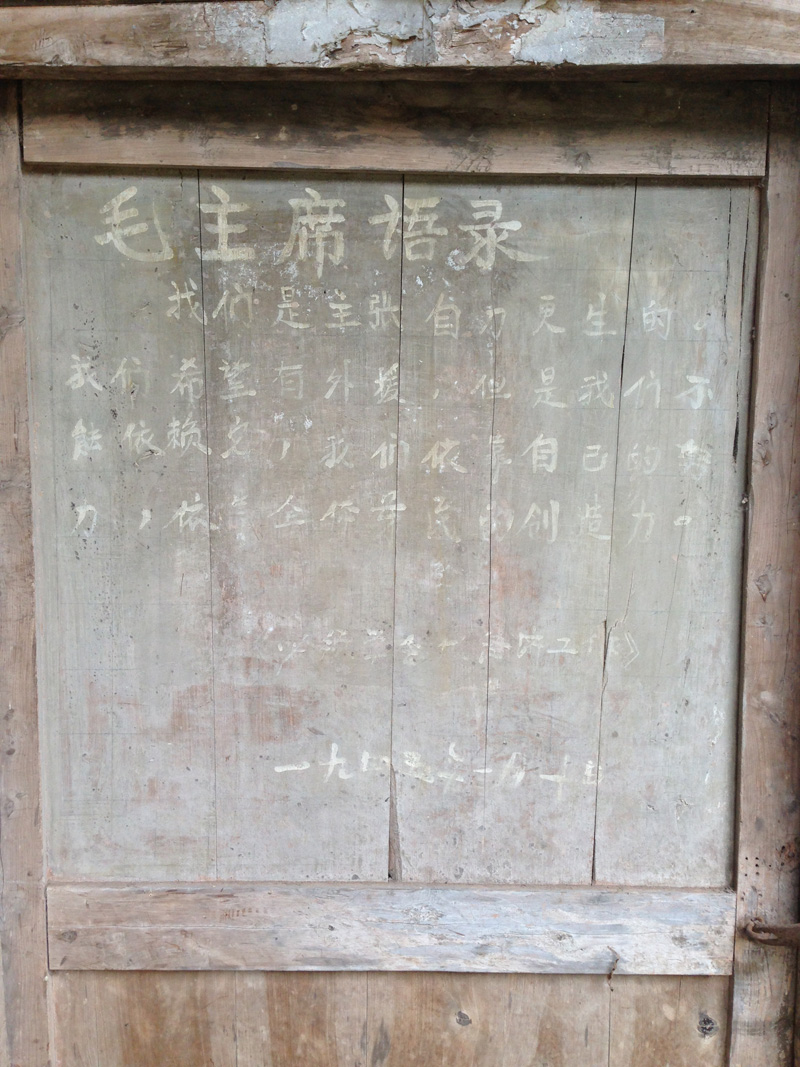 毛主席语录
我们是主张自力更生的。
我们希望有外援，但是我们不
能依赖它，我们依靠自己的努
力，依靠全体军民的创造力。
学会 济工作》
一九四五年一月十日